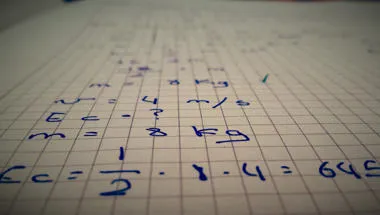 m = 8 Kg
v = 4 m/s
Ec = ?
m = 8 Kg
Ec = 1/2 · 8 · 4 = 64J